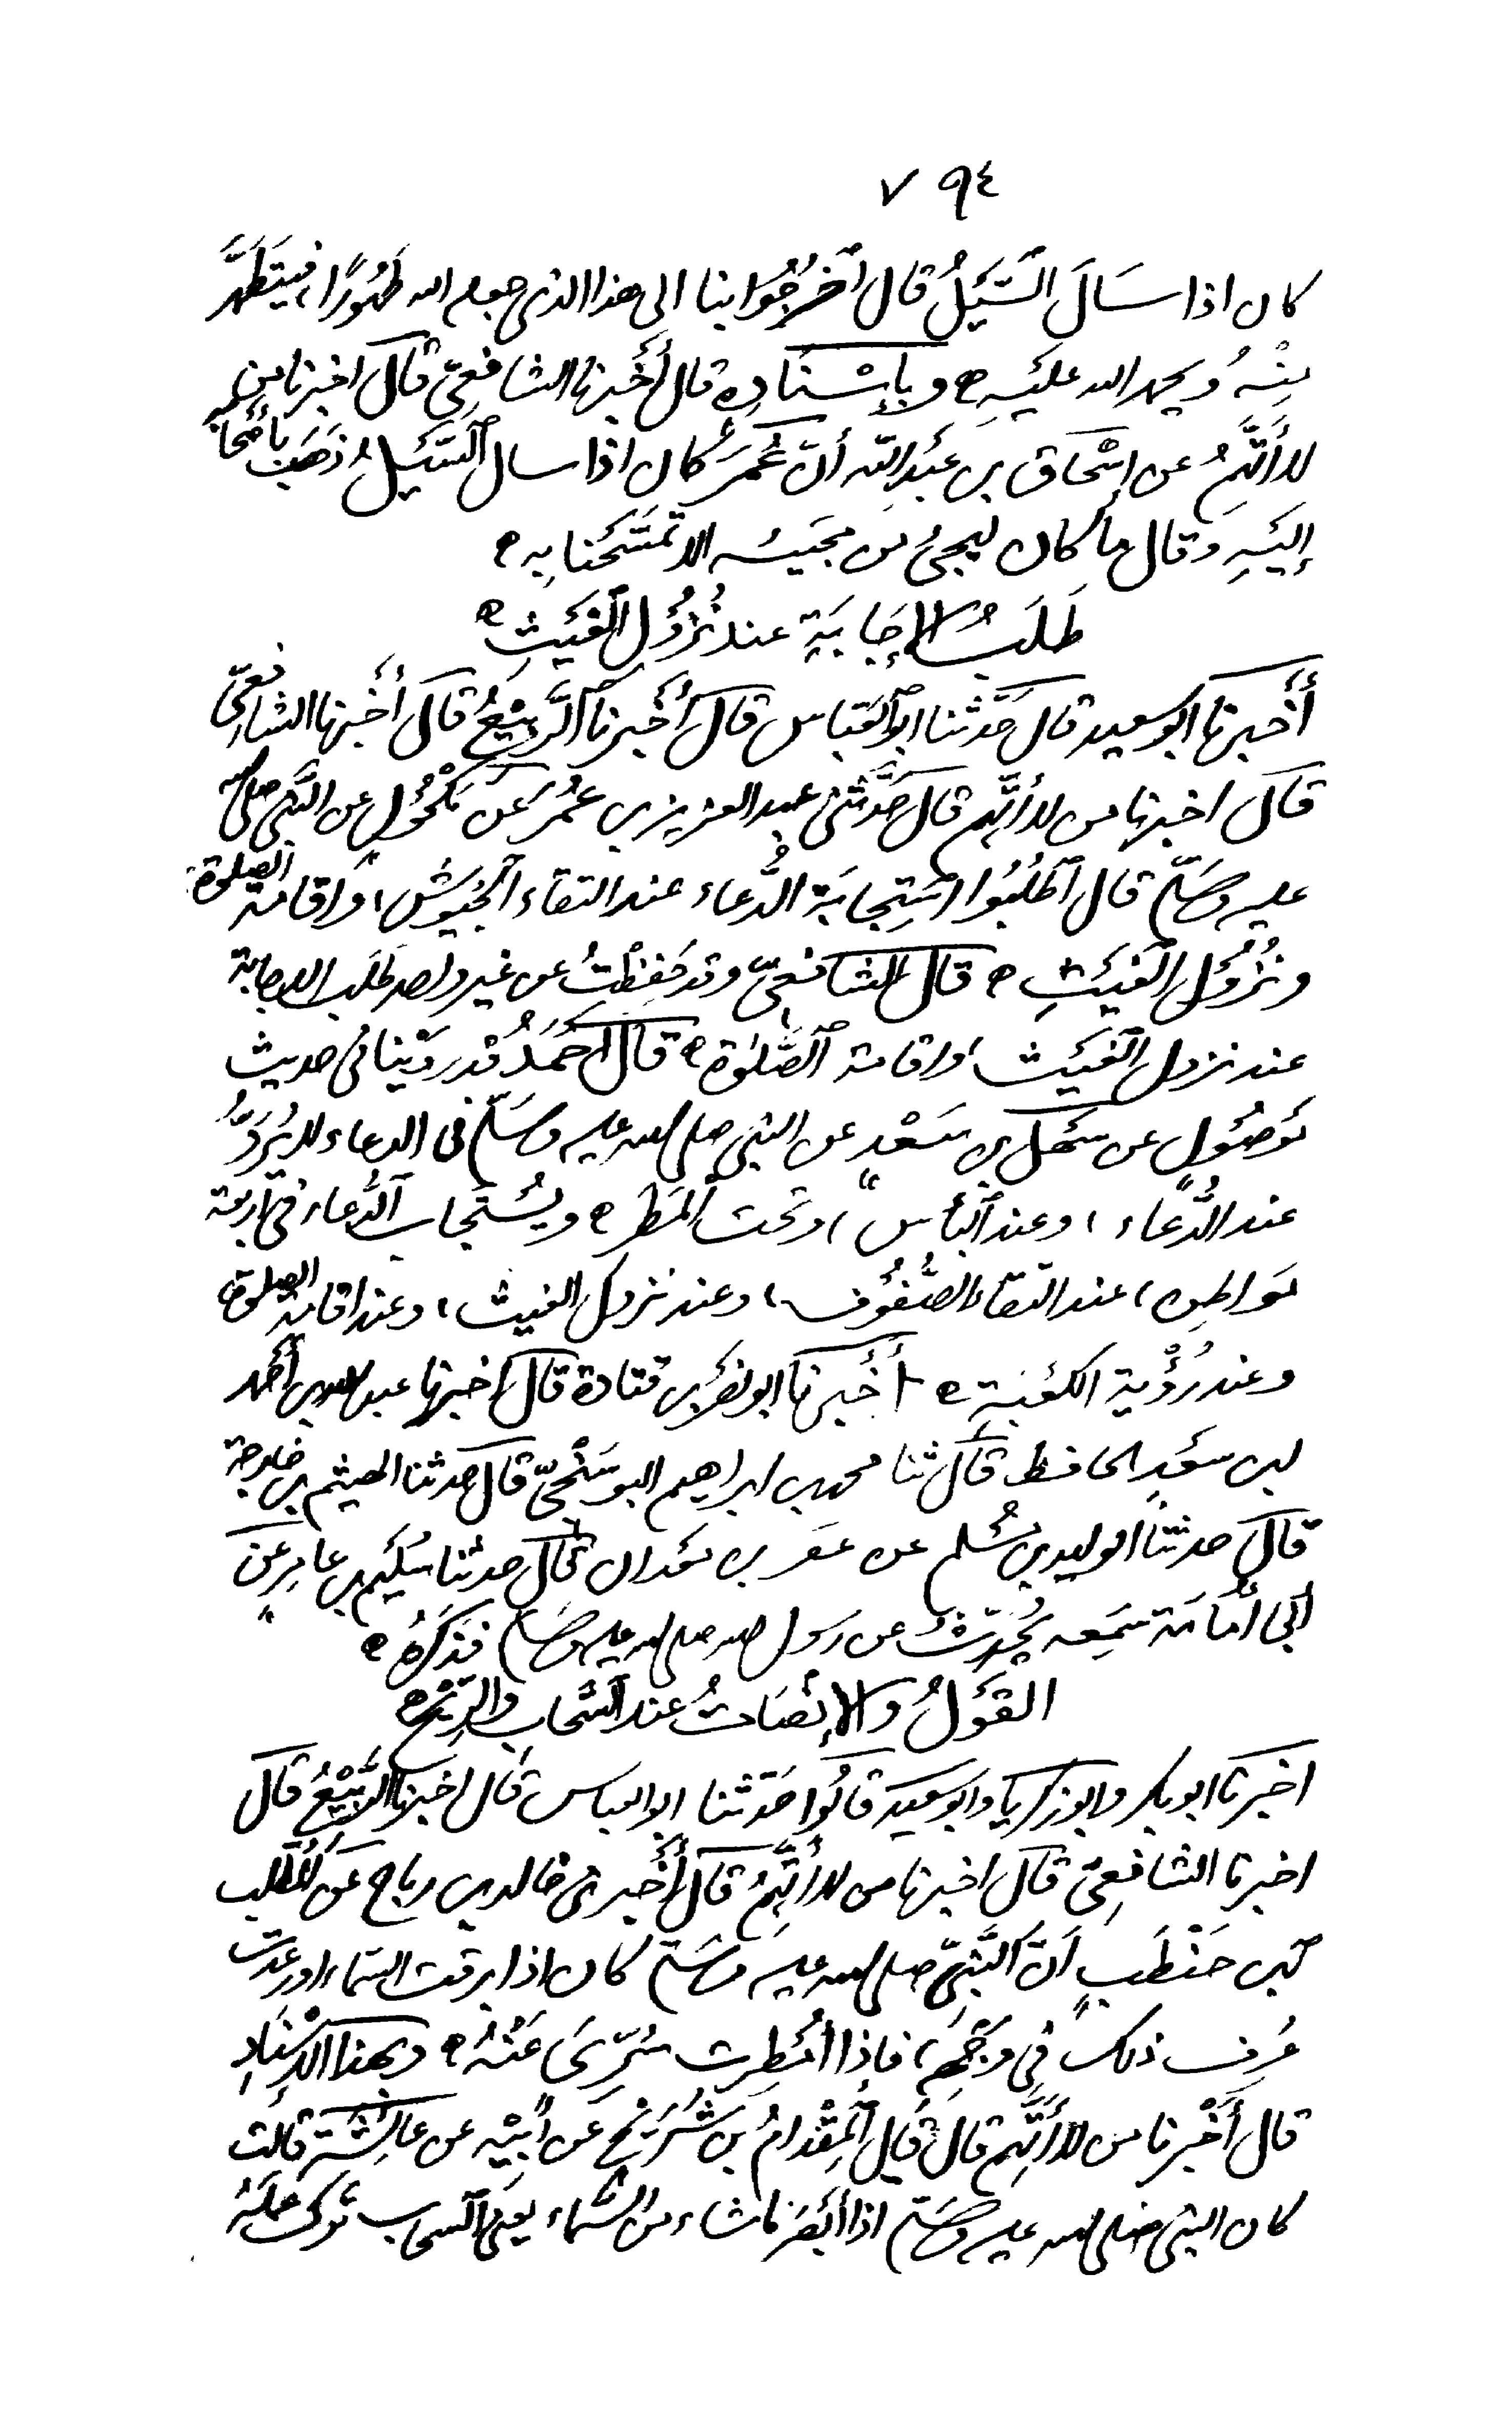 ٧٩٤
كان اذا سَالَ السَّيْلُ قال اخْرُجُوا بنا الى هذا الذى جعله الله طَهُورًا، فيتَطَهَّر
مِنْهُ ويحمد الله عليْهِ ه وبإسْنَادِهِ قال أَخْبرنا الشافِعِىّ قال اخبرنا من
لا أَتَّهِمُ عن إسْحَاق بن عبْدِ الله أنّ عُمَرَ كان اذا سال السَّيْلُ ذَهَبَ بأصْحَابه
إليْهِ وقال ما كان ليجىُٔ من مجيئه الا تَمَسَّحْنا به ه
طَلَبُ الإِجَابَةِ عند نُزُوْلِ الغَيْثِ ه
أَخْبرنا ابو سعيد قال حَدَّثنا ابو العَبّاس قال أَخْبرنا الرَّبِيْعُ قال أَخْبرنا الشافعىّ
قال اخبرنا من لا أَتَّهِم قال حَدَّثَنى عبد العزيز بن عُمَرَ عَنْ مَكْحُوْلٍ عن النَّبى صلى الله
عليه وسَلّم قال اطْلُبُوا اسْتِجابَةَ الدُّعاء عند التقاء الجُيُوْش، واقامة الصلوة
ونُزُوْلِ الغَيْثِ ه قال الشافعىّ وقد حَفِظْتُ عن غير واحد طَلَبَ الاجابة
عند نزول الغَيْث، واقامة الصَّلوة ه قال احْمَدُ قد رَوَيْنا فى حديثٍ
مَوْصُوْلٍ عن سَهْل بن سَعْدٍ عن النبى صلى الله عليه وسَلّم فى الدعاء لا يُرَدُّ
عند الدُّعاء، وعند البأس، وتحت المَطَر ه ويُسْتَجاب الدُّعاء فى أربعة
مَواطِن، عند التقاء الصُّفُوْف، وعند نزول الغيث، وعند اقامة الصلوة
وعند رُؤْية الكعْبَةِ ه أَخْبرنا ابو نصْر بن قتادة قال اخبرنا عبد الله بن أَحْمد
ابن سعْدٍ الحافظ قال ثنا محمد بن ابراهيم البوسَنْجىّ قال حدثنا الهيثم بن خارجة
قال حدثنا الوليد بن مُسْلم عن عفير بن معدان قال حدثنا سُلَيْم بن عامِر عَنْ
ابى أُمَامَة سَمِعه يُحَدِّثُ عن رسول الله صلى الله عليه وسَلم فذَكَرَهُ ه
القَوْلُ والإِنْصَاتُ عند السَّحاب والرِّيْح ه
اخبرنا ابو بكر وابو زكريا وابو سَعيد قالُوا حَدّثنا ابو العباس قال اخبرنا الرَّبِيْعُ قال
اخبرنا الشافِعىّ قال اخبرنا من لا أَتَّهِمُ قال أَخْبرنى خالد بن رباح عَنِ المُطَّلب
ابن حَنْطَبٍ أنّ النَّبِىّ صلى الله عليه وسَلّم كان اذا برقت السّماء اورعدت
عُرِف ذلك فِى وَجْهِهِ، فإِذا أُمْطِرت سُرِّىَ عَنْهُ ه وبهذا الاسْنَادِ
قال أَخْبرنا من لا أَتَّهِم قال قال المِقْدامُ بن شُرَيْحٍ عَنْ أبِيْهِ عن عائِشَة قالت
كان النبى صَلى الله عليه وسَلّم اذا أبْصَرْنا شاء من السَّماء يعنى السحاب تَرك عملَهُ